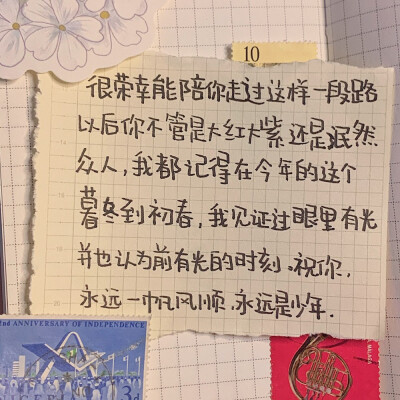 10
很荣幸能陪你走过这样一段路
以后你不管是大红大紫还是泯然
众人,我都记得在今年的这个
暮冬到初春,我见证过眼里有光
并也认为前有光的时刻.祝你,
永远一帆风顺.永远是少年.
2nd ANNIVERSARY OF INDEPENDENCE
3d